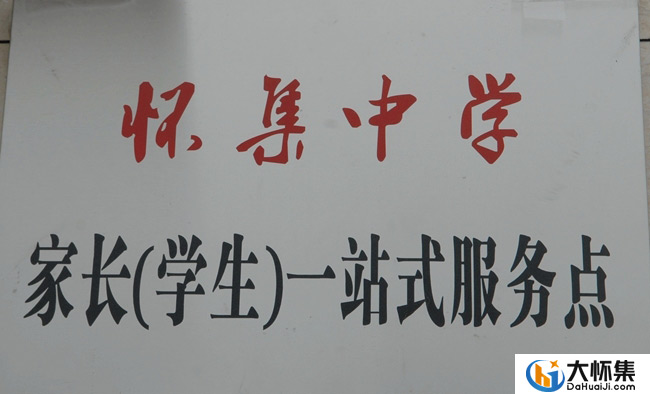 怀集中学
家长(学生)一站式服务点
大怀集
DaHuaiJi.com